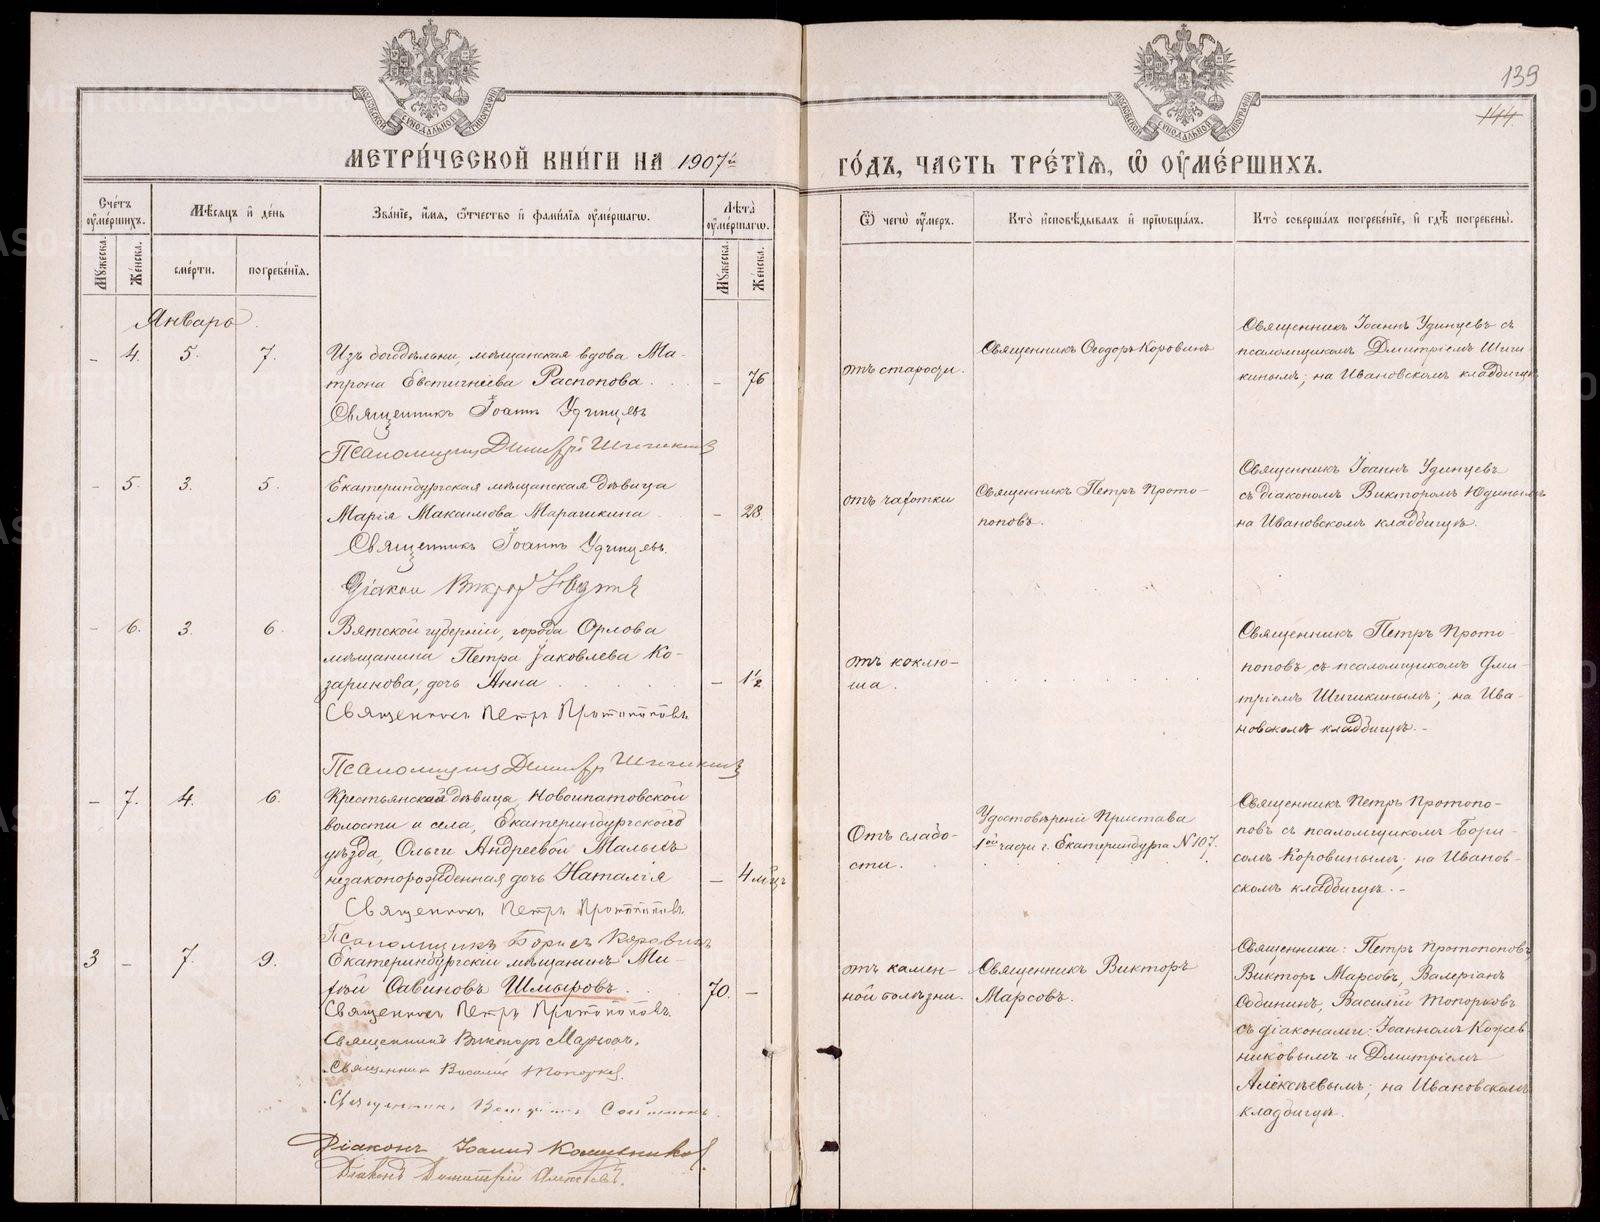 139
144
МОСКОВСКОЙ СУНОДАЛЬНОЙ ТИПОГРАФІИ
МОСКОВСКОЙ СУНОДАЛЬНОЙ ТИПОГРАФІИ
МЕТРИ́ЧЕСКОЙ КНИ́ГИ НА 1907й
ГО́ДЪ, ЧАСТЬ ТРЕ́ТІѦ, Ѡ҆ ОУ҆МЕ́РШИХЪ.
Сче́тъ оу҆ме́ршихъ.
Мѣ́сяцъ и҆ де́нь
Зва́нїе, и҆́мя, ѻ҆́тчество и҆ фами́лїя оу҆ме́ршагѡ.
Лѣ́та оу҆ме́ршагѡ.
Ѿ чегѡ̀ оу҆́меръ.
Кто̀ и҆сповѣ́дывалъ и҆ прїѡбща́лъ.
Кто̀ соверша́лъ погребе́нїе, и҆ гдѣ̀ погребены̀.
Мꙋ́жеска.
Же́нска.
сме́рти.
погребе́нїя.
Мꙋ́жеска.
Же́нска.
Январь.
– 4. 5. 7.
Изъ богадѣльни, мѣщанская вдова Ма-
трона Евстигнѣева Распопова. – 76
Священникъ Іоаннъ Удинцевъ
Псаломщикъ Димитрій Шишкинъ
отъ старости.
Священникъ Ѳеодоръ Коровинъ
Священникъ Іоаннъ Удинцевъ съ
псаломщикомъ Дмитріемъ Шиш-
кинымъ; на Ивановскомъ кладбищѣ
– 5. 3. 5.
Екатеринбургская мѣщанская дѣвица
Марія Максимова – 28.
Священникъ Іоаннъ Удинцевъ.
Діаконъ Викторъ Юдинъ
отъ чахотки
Священникъ Петръ Прото-
поповъ.
Священникъ Іоаннъ Удинцевъ
съ діакономъ Викторомъ Юдинымъ
на Ивановскомъ кладбищѣ.
– 6. 3. 6.
Вятской губерніи, города Орлова
мѣщанина Петра Іаковлева Ко-
заринова, дочь Анна – 1½
Священникъ Петръ Протопоповъ
Псаломщикъ Димитр Шишкинъ
отъ коклю-
ша.
Священникъ Петръ Прото-
поповъ съ псаломщикомъ Дми-
тріемъ Шишкинымъ; на Ива-
новскомъ кладбищѣ. –
– 7. 4. 6.
Крестьянской дѣвицы, Новоипатовской
волости и села, Екатеринбургскаго
уѣзда, Ольги Андреевой Малыхъ
незаконорожденная дочь Наталія – 4 мѣц
Священникъ Петръ Протопоповъ
Псаломщикъ Борисъ Коровинъ
Отъ слабо-
сти.
Удостовѣреніе Пристава
1ой части г. Екатеринбурга N 107.
Священникъ Петръ Протопо-
повъ съ псаломщикомъ Бори-
сомъ Коровинымъ; на Иванов-
скомъ кладбищѣ. –
3 – 7. 9.
Екатеринбургскій мѣщанинъ Ми-
Савиновъ Шмыровъ. 70. –
Священникъ Петръ Протопоповъ.
Священникъ Викторъ Марсовъ.
Священникъ Василій Топорковъ.
Священникъ
Діаконъ Іоаннъ Кожевниковъ
Діаконъ Димитрій Алексѣевъ.
отъ камен-
ной болѣзни.
Священникъ Викторъ
Марсовъ.
Священники: Петръ Протопоповъ
Викторъ Марсовъ, Валеріанъ
Василій Топорковъ
съ діаконами: Іоанномъ Кожев-
никовымъ и Дмитріемъ
Алексѣевымъ; на Ивановскомъ
кладбищѣ.